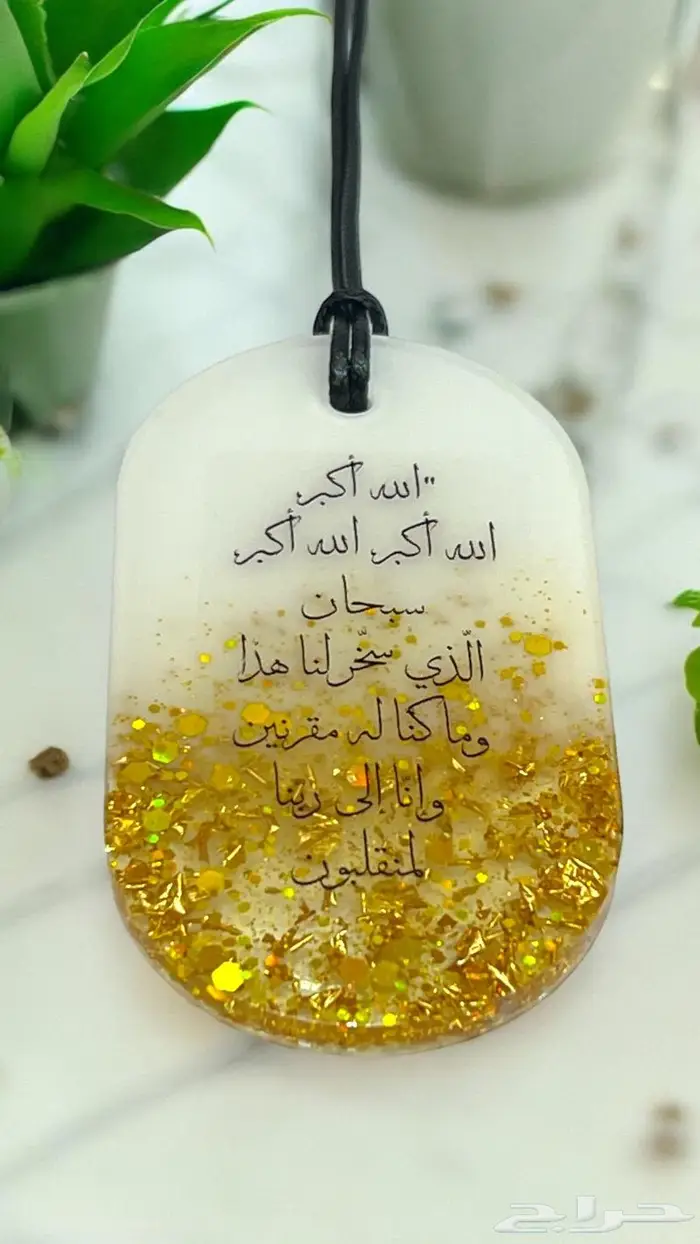 "الله أكبر
الله أكبر الله أكبر
سبحان
الّذي سخّر لنا هذا
وما كنا له مقرنين
وإنا إلى ربنا
لمنقلبون
حراج